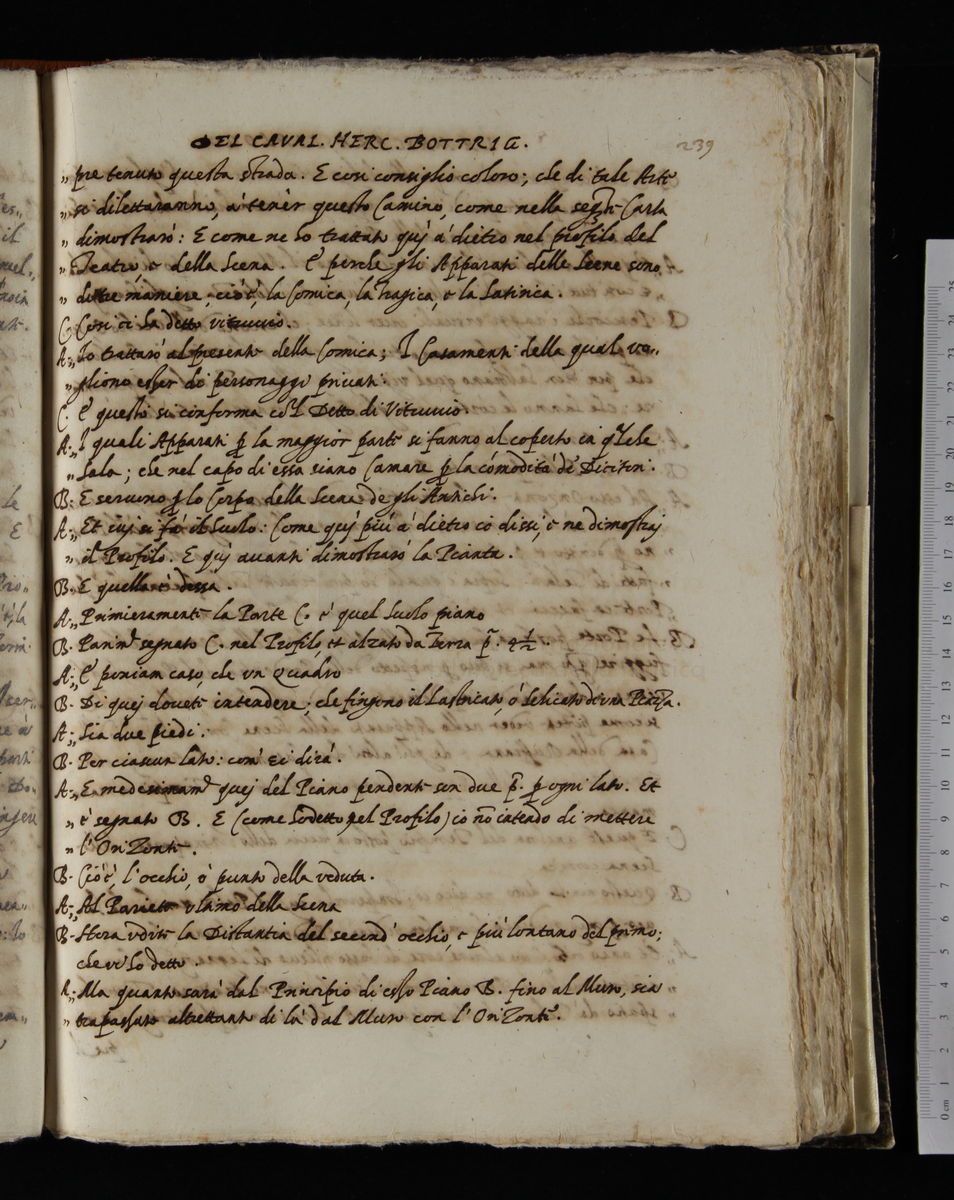 DEL CAVAL. HERC. BOTTRIG. 239
„ pre tenuto questa strada. E così consiglio coloro; che di tale Arte
„ si dilettaranno, a' tenèr questo Camino, come nella segte Carta
„ dimostrarò: E come ne ho trattato quì à dietro nel profilo del
„ Teatro, e della Scena. E' perche gli Apparati delle Scene sono
„ di tre maniere; cioè, la Comica, la Tragica, e la Satirica.
C. Così ci ha detto Vitruuio.
A. „ Io trattarò al presente della Comica; I Casamenti della qual vo„
„ gliono esser di personaggi priuati.
C. E' questo si conforma col Detto di Vitruuio.
A. „ I quali Apparati p la maggior parte si fanno al coperto in qlche
„ Sala; che nel capo di essa siano Camare p la comodità de' Dicitori.
B. E seruino p lo Corpo della Scena de gli Antichi.
A. „ Et iuj si fà il Suolo: Come quj più à dietro io dissi, e ne dimostraj
„ il Profilo. E quj auanti dimostrarò la Pianta.
B. E quella è dessa.
A. „ Primieramente la Parte C. è quel Suolo piano
B. Parimte segnato C. nel Profilo, et alzato da Terra p. 4 1/2
A. „ E' poniam caso, che vn Quadro
B. Di quej douete intendere; che fingono il Lastricato, ò Selicato di vna Piazza.
A. „ Sia due piedi.
B. Per ciascun lato: com' ei dirà.
A. „ E medesimamte quej del Piano pendente son due p. p ogni lato. Et
„ è segnato B. E (come ho detto nel Profilo) io nō intendo di mettere
„ l' Orizonte.
B. Cioè, l'occhio, ò punto della veduta.
A. „ Al Pariete vltimo della Scena
B. Hora vdite la Distantia del second' occhio, e più lontano del primo;
che vi ho detto.
A. „ Ma quanto sarà dal Principio di esso Piano B. fino al Muro, sia
„ trapassato altrettanto di là dal Muro con l' Orizonte.